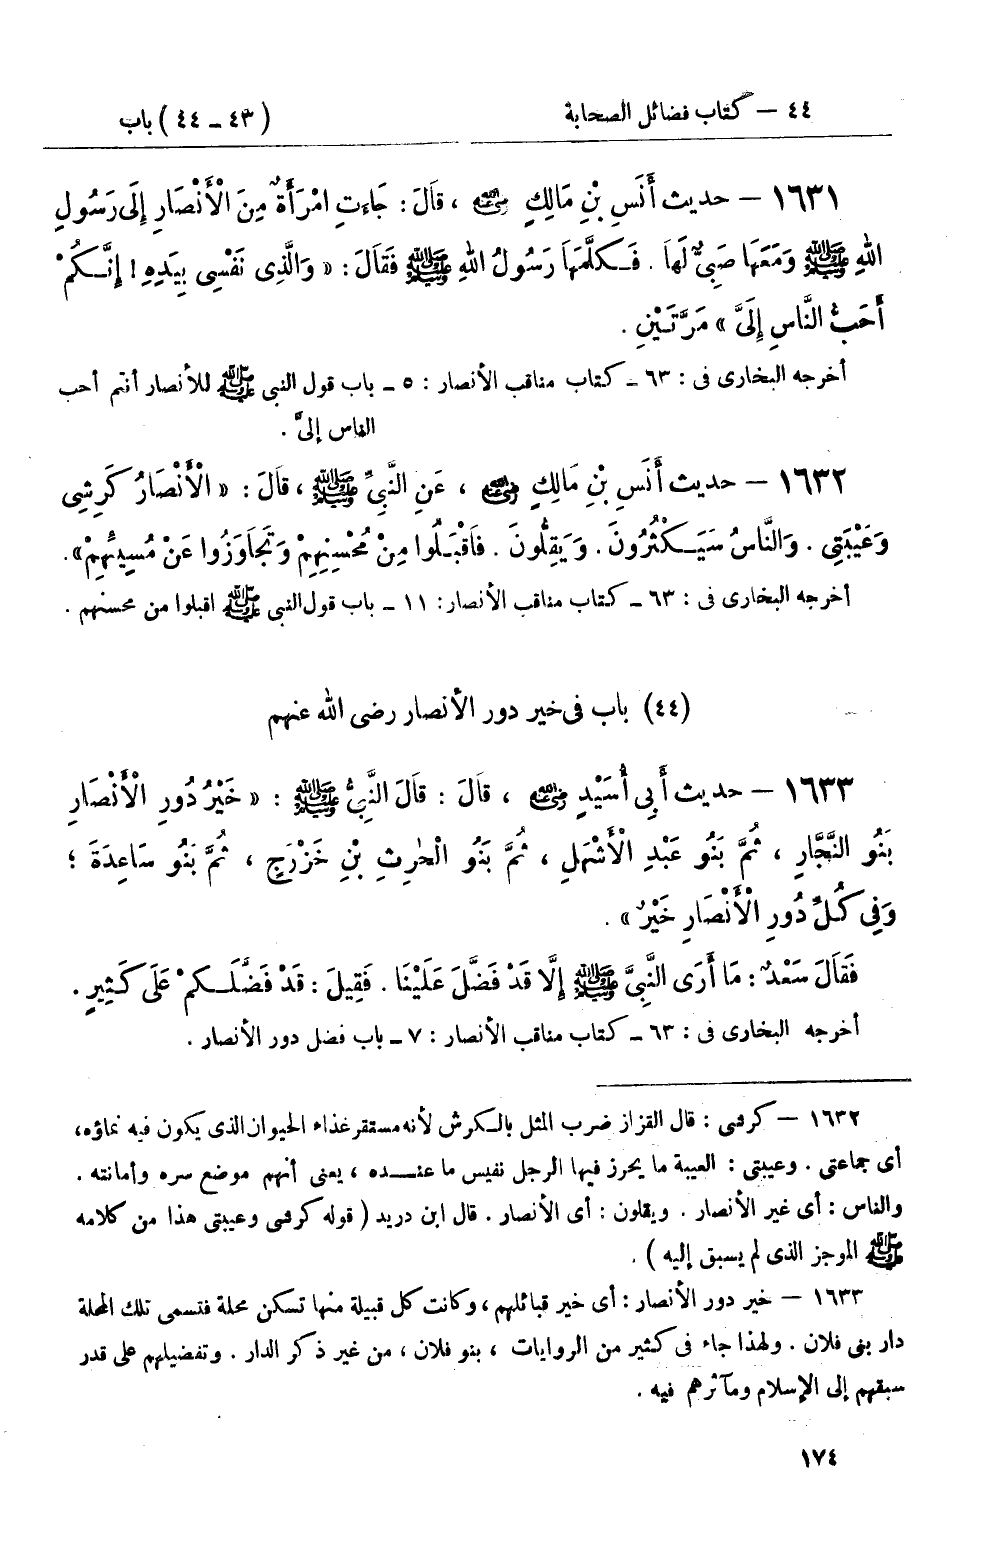 ٤٤ — كتاب فضائل الصحابة
(٤٣ ـ ٤٤) باب
١٦٣١ — حديث أَنَسِ بْنِ مَالِكٍ رضي الله عنه ، قَالَ : جَاءَتِ امْرَأَةٌ مِنَ الْأَنْصَارِ إِلَى رَسُولِ
اللهِ ﷺ وَمَعَهَا صَبِيٌّ لَهَا . فَكَلَّمَهَا رَسُولُ اللهِ ﷺ فَقَالَ : « وَالَّذِى نَفْسِى بِيَدِهِ ! إِنَّكُمْ
أَحَبُّ النَّاسِ إِلَىَّ » مَرَّتَيْنِ .
أخرجه البخارى فى : ٦٣ ـ كتاب مناقب الأنصار : ٥ ـ باب قول النبى ﷺ للأنصار أنتم أحب
الناس إلىَّ .
١٦٣٢ — حديث أَنَسِ بْنِ مَالِكٍ رضي الله عنه ، عَنِ النَّبِيِّ ﷺ ، قَالَ : « الْأَنْصَارُ كَرِشِى
وَعَيْبَتِى . وَالنَّاسُ سَيَكْثُرُونَ . وَيَقِلُّونَ . فَاقْبَلُوا مِنْ مُحْسِنِهِمْ وَتَجَاوَزُوا عَنْ مُسِيئِهِمْ » .
أخرجه البخارى فى : ٦٣ ـ كتاب مناقب الأنصار : ١١ ـ باب قول النبى ﷺ اقبلوا من محسنهم .
(٤٤) باب فى خير دور الأنصار رضى الله عنهم
١٦٣٣ — حديث أَبِى أُسَيْدٍ رضي الله عنه ، قَالَ : قَالَ النَّبِىُّ ﷺ : « خَيْرُ دُورِ الْأَنْصَارِ
بَنُو النَّجَّارِ ، ثُمَّ بَنُو عَبْدِ الْأَشْهَلِ ، ثُمَّ بَنُو الْحٰرِثِ بْنِ خَزْرَجٍ ، ثُمَّ بَنُو سَاعِدَةَ ؛
وَفِى كُلِّ دُورِ الْأَنْصَارِ خَيْرٌ » .
فَقَالَ سَعْدٌ : مَا أَرَى النَّبِىَّ ﷺ إِلَّا قَدْ فَضَّلَ عَلَيْنَا . فَقِيلَ : قَدْ فَضَّلَكمْ عَلَى كَثِيرٍ .
أخرجه البخارى فى : ٦٣ ـ كتاب مناقب الأنصار : ٧ ـ باب فضل دور الأنصار .
١٦٣٢ — كرشى : قال القزاز ضرب المثل بالكرش لأنه مستقر غذاء الحيوان الذى يكون فيه نماؤه،
أى جماعتى . وعيبتى : العيبة ما يحرز فيها الرجل نفيس ما عنده ، يعنى أنهم موضع سره وأمانته .
والناس : أى غير الأنصار . ويقلون : أى الأنصار . قال ابن دريد ( قوله كرشى وعيبتى هذا من كلامه
ﷺ الموجز الذى لم يسبق إليه ) .
١٦٣٣ — خير دور الأنصار : أى خير قبائلهم ، وكانت كل قبيلة منها تسكن محلة فتسمى تلك المحلة
دار بنى فلان . ولهذا جاء فى كثير من الروايات ، بنو فلان ، من غير ذكر الدار . وتفضيلهم على قدر
سبقهم إلى الإسلام ومآثرهم فيه .
١٧٤